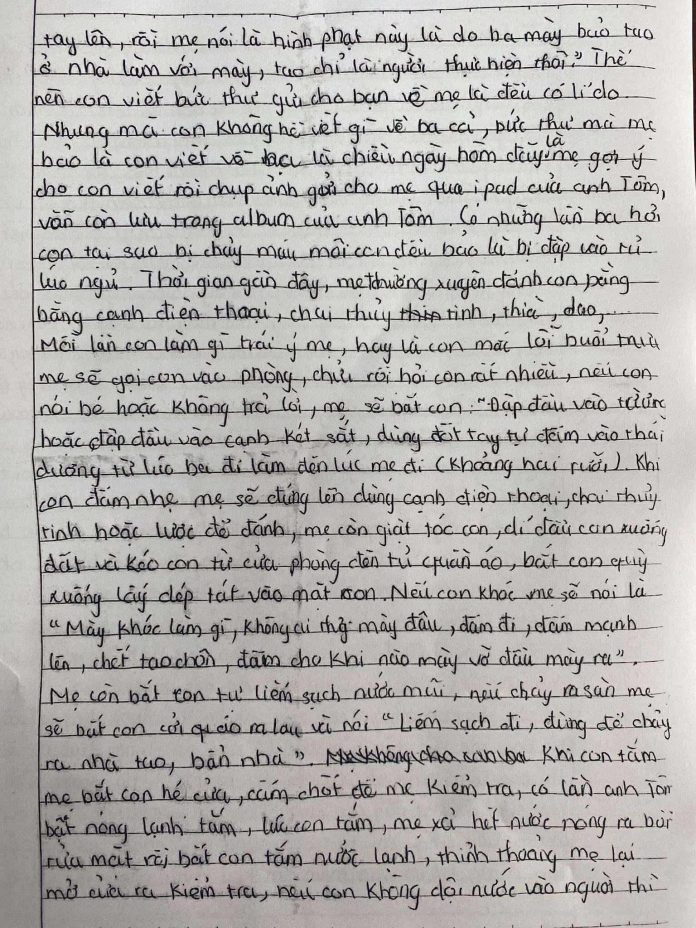 tay lên, rồi mẹ nói là hình phạt này là do ba mày bảo tao
ở nhà làm với mày, tao chỉ là người thực hiện thôi." Thế
nên con viết bức thư gửi cho bạn về mẹ là đều có lí do.
Nhưng mà con không hề viết gì về ba cả, bức thư mà mẹ
bảo là con viết về là chiều ngày hôm đấy là mẹ gợi ý
cho con viết rồi chụp ảnh gửi cho mẹ qua ipad của anh Tôm,
vẫn còn lưu trong album của anh Tôm. Có những lần ba hỏi
con tai sao bị chảy máu môi con đều bảo là bị đập vào tủ
lúc ngủ. Thời gian gần đây, mẹ thường xuyên đánh con bằng
bằng cạnh điện thoại, chai thủy tinh, thìa, dao,
Mỗi lần con làm gì trái ý mẹ, hay là con mắc lỗi buổi trưa
mẹ sẽ gọi con vào phòng, chửi rồi hỏi con rất nhiều, nếu con
nói bé hoặc không trả lời, mẹ sẽ bắt con: "Đập đầu vào tường
hoặc đập đầu vào cạnh két sắt, dùng đốt tay tự đấm vào thái
dương từ lúc ba đi làm đến lúc mẹ đi (khoảng hai rưỡi). Khi
con đấm nhẹ mẹ sẽ đứng lên dùng cạnh điện thoại, chai thủy
tinh hoặc lược để đánh, mẹ còn giật tóc con, dí đầu con xuống
đất và kéo con từ cửa phòng đến tủ quần áo, bắt con quỳ
xuống lấy dép tát vào mặt con. Nếu con khóc mẹ sẽ nói là
"Mày khóc làm gì, không ai mày đâu, đấm đi, đấm mạnh
lên, chết tao chôn, đấm cho khi nào mày vỡ đầu mày ra".
Mẹ còn bắt con tự liếm sạch nước mũi, nếu chảy ra sàn mẹ
sẽ bắt con cởi quần áo ra lau và nói "Liếm sạch đi, đừng để chảy
ra nhà tao, bẩn nhà". Mẹ không cho con Khi con tắm
mẹ bắt con hé cửa, cấm chốt để mẹ kiểm tra, có lần anh Tôm
bật nóng lạnh tắm, lúc con tắm, mẹ xả hết nước nóng ra bồn
rửa mặt rồi bắt con tắm nước lạnh, thỉnh thoảng mẹ lại
mở cửa ra kiểm tra, nếu con không dội nước vào người thì